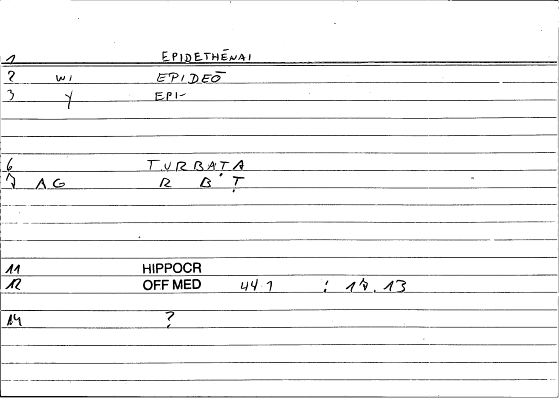 1 EPIDETHĒNAI
2 WI EPIDEŌ
3 Y EPI-
6 TURBATA
7 AG R B T
11 HIPPOCR
12 OFF MED 44 1 : 17.13
14 ?